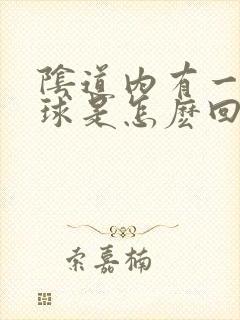 陰道內有一
球是怎麽回
索嘉楠